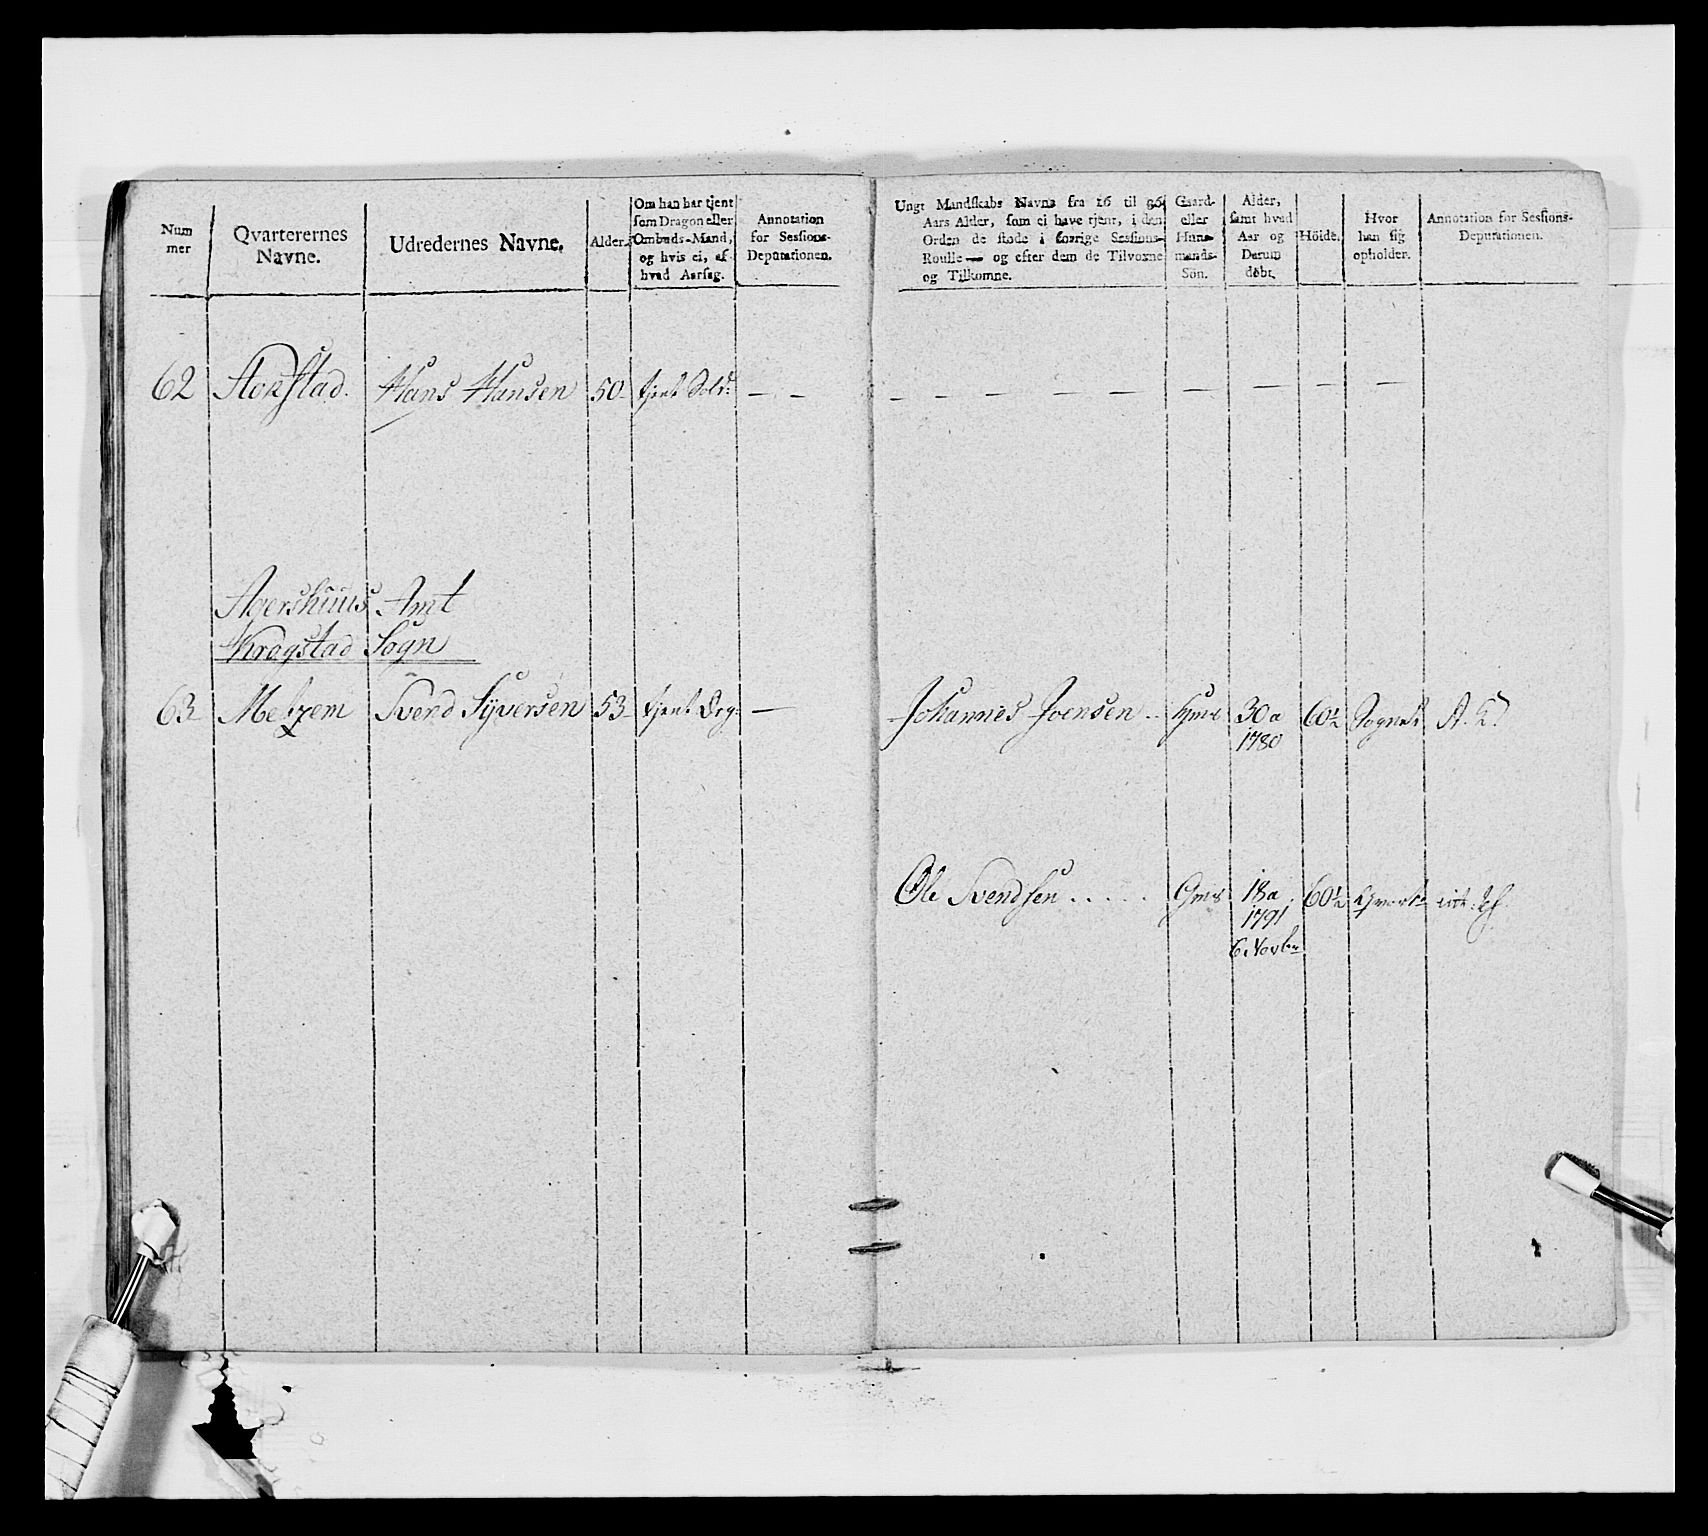 Num
mer
Qvarterernes
Navne.
Udredernes Navne.
Alder.
Om han har tjent
som Dragon eller
Ombuds-Mand,
og hvis ei, af
hvad Aarsag.
Annotation
for Sessions-
Deputationen.
Ungt Mandskabs Navne fra 16 til 36
Aars Alder, som ei have tjent, i den
Orden de stode i forrige Sessions-
Roulle — og efter dem de Tilvoxne
og Tilkomne.
Gaard-
eller
Huus-
mands-
Sön.
Alder,
samt hvad
Aar og
Datum
född.
Höide.
Hvor
han sig
opholder.
Annotation for Sessions-
Deputationen.
62 Hans Hansen 50 tjent Sold: — — — — — — — — — — —
Agershuus Amt
Kragstad Sogn
63 Svend Syversen 53 tjent Drg: — Johannes Joensen .. 30 a 60½ Sognet A. D.
1780
Ole Svendsen ..... Gms 18 a. 60½
1791
6 Novbr